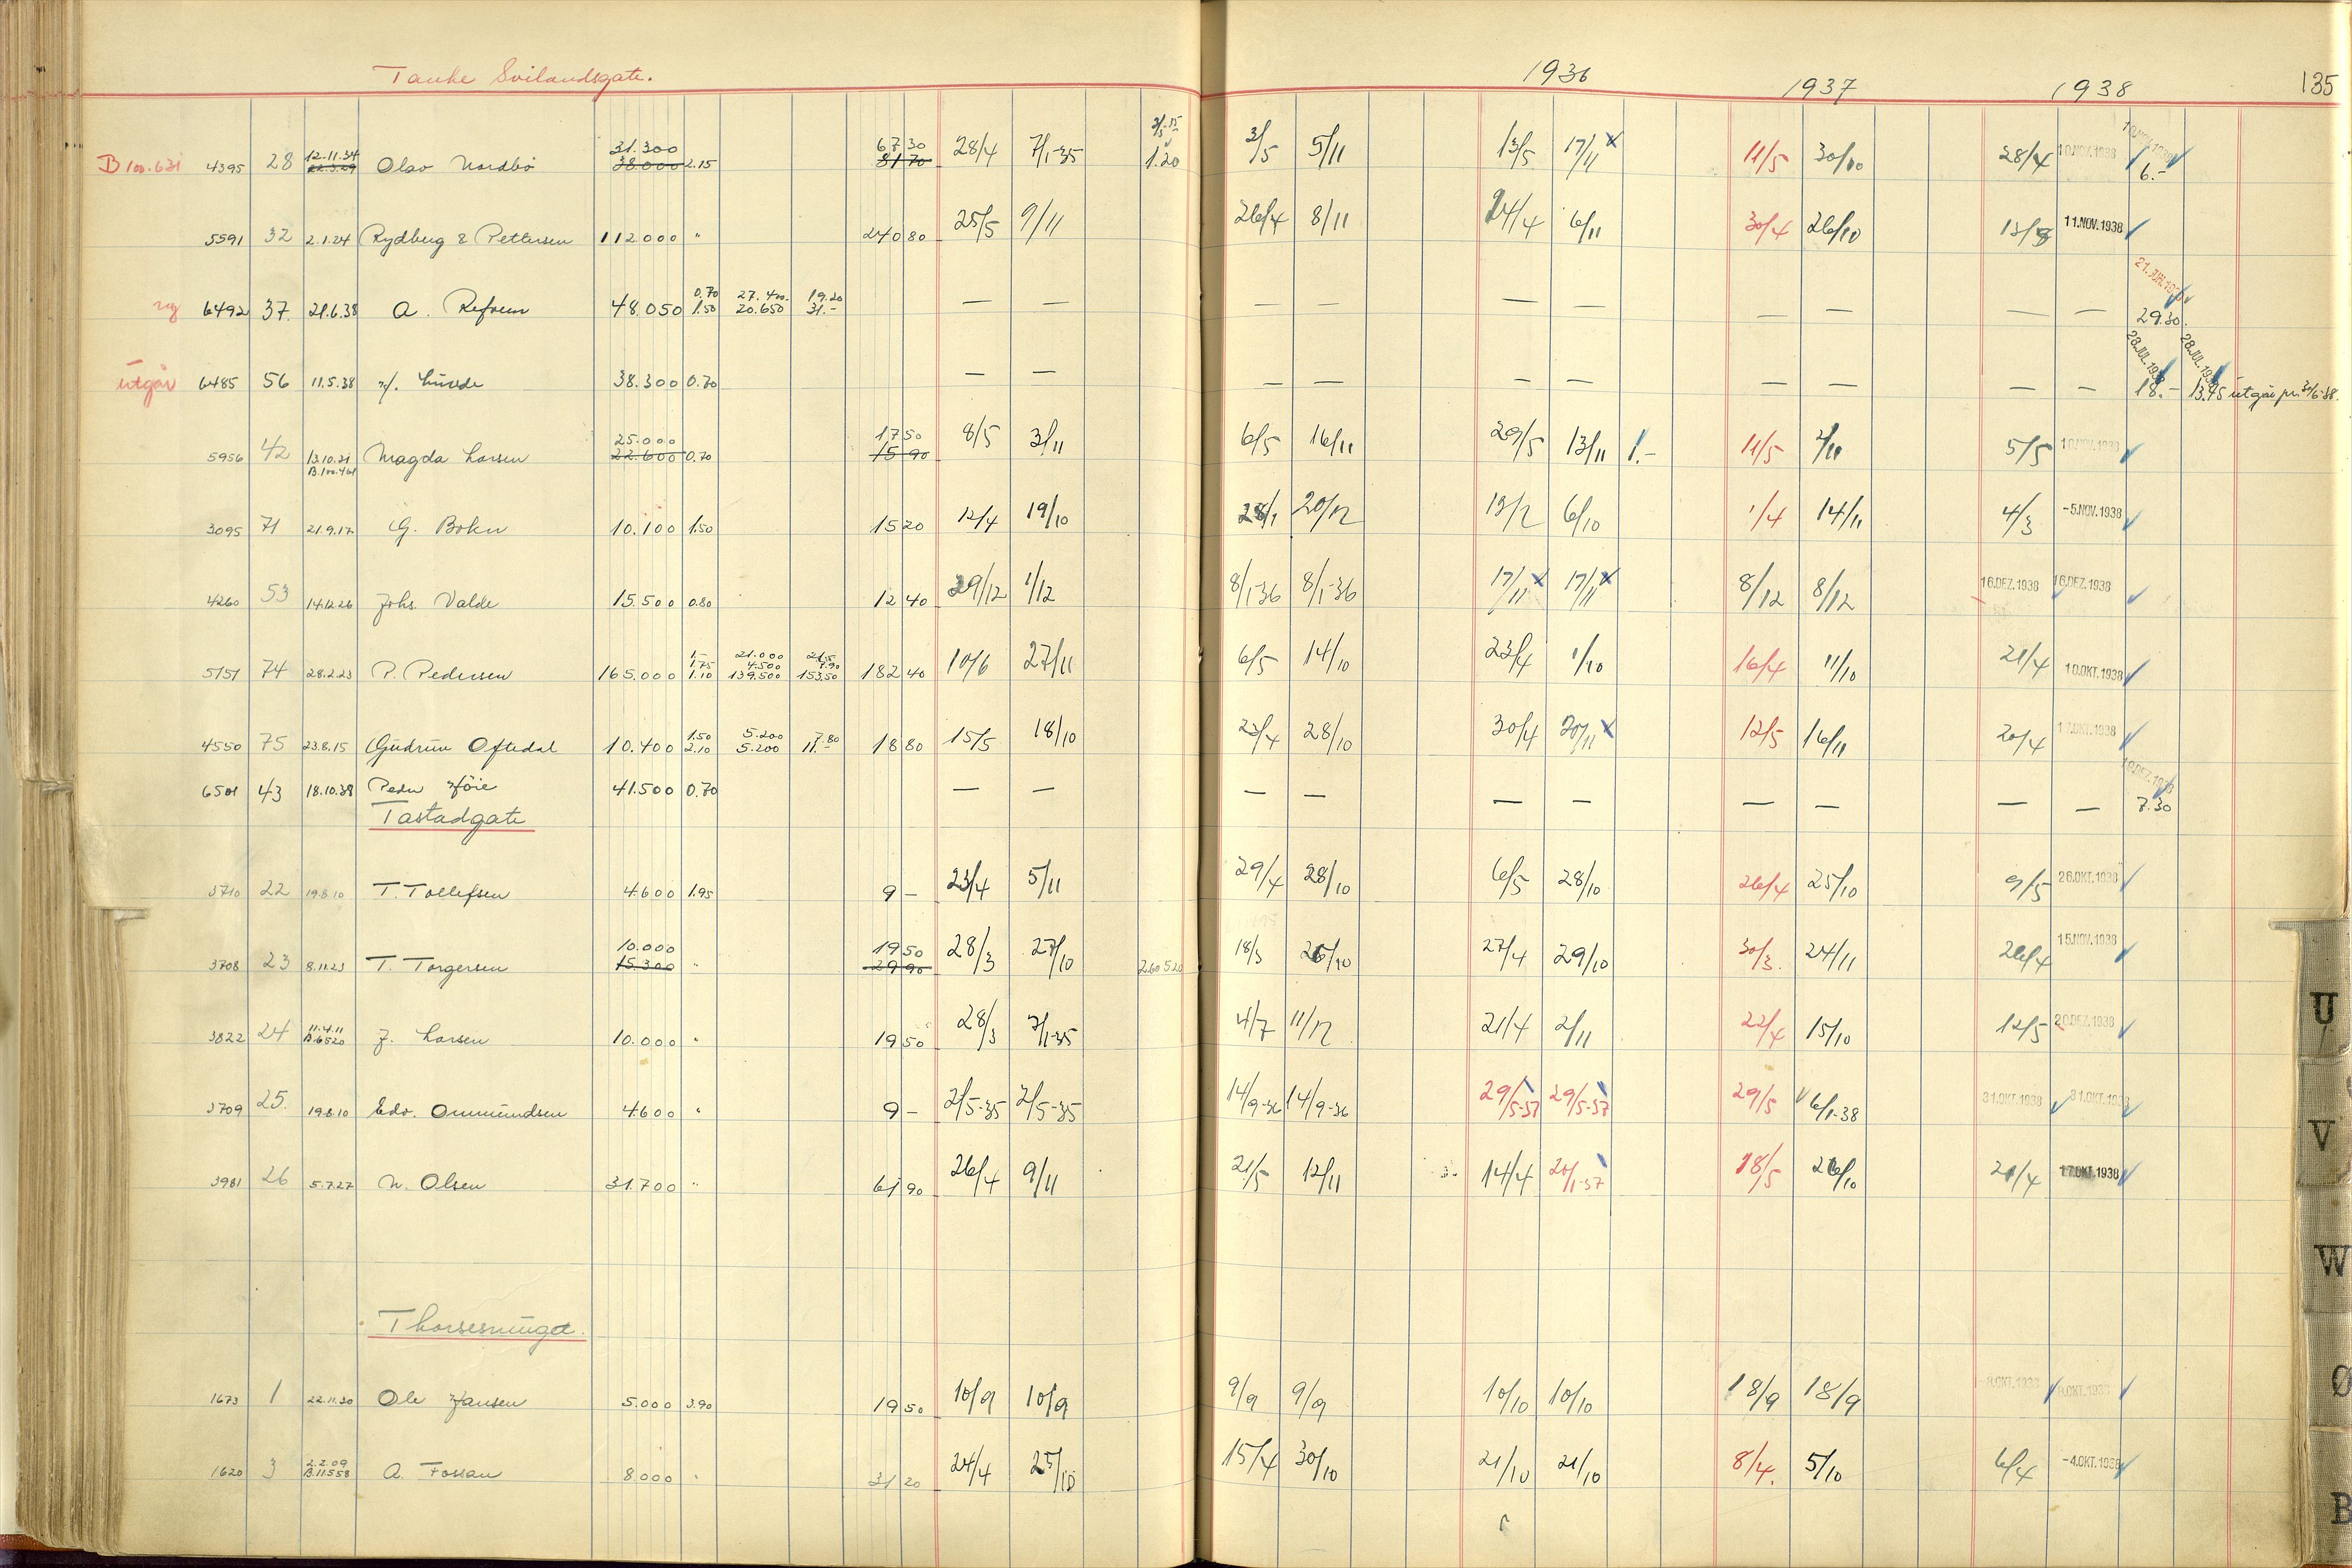 Tanke Svilandsgate. 1936 1937 1938 135
B 100.631 4395 28 12.11.34 22.3.29 Olav Nordbö 31.300 38.000 2.15 67 30 81 70 28/4 7/1-35 1.20 3/5 5/11 13/5 17/11 x 11/5 30/10 28/4 10.NOV.1938 6.-
5591 32 2.1.24 Rydberg & Pettersen 112000 " 240 80 25/5 9/11 26/4 8/11 24/4 6/11 30/4 26/10 13/8 11.NOV.1938
ny 6492 37. 21.6.38 A. Refvem 48.050 0.70 1.50 27.400 20.650 19.20 31.- — — — — — — — — — — 29.30.
utgår 6485 56 11.5.38 Lunde 38.300 0.70 — — — — — — — — — — 28.JUL.1938 28.JUL.1938 18.- 13.45 utgår pr. 30/6-38.
5956 42 13.10.21 B.100.461 Magda Larsen 25.000 22.600 0.70 17 50 15 90 8/5 3/11 6/5 16/11 29/5 13/11 1.- 11/5 2/11 5/5 10.NOV.1938
3095 71 21.9.17 G. Bokn 10.100 1.50 15 20 12/4 19/10 28/1 20/12 13/2 6/10 1/4 14/11 4/3 -5.NOV.1938
4260 53 14.12.26 Johs. Valde 15.500 0.80 12 40 29/12 1/12 8/1-36 8/1-36 17/11 x 17/11 x 8/12 8/12 16.DEZ.1938 16.DEZ.1938
5151 74 28.2.23 P. Pedersen 165.000 1.- 1.75 1.10 21.000 4.500 139.500 21.- 7.90 153.50 182 40 10/6 27/11 6/5 14/10 23/4 1/10 16/4 11/10 21/4 10.OKT.1938
4550 75 23.8.15 Gudrun Oftedal 10.400 1.50 2.10 5.200 5.200 7.80 11.- 18 80 15/5 18/10 23/4 28/10 30/4 20/11 x 12/5 16/11 20/4 17.OKT.1938
6501 43 18.10.38 Peder Höie 41.500 0.70 — — — — — — — — — — 7.30
Tastadgate
3710 22 19.8.10 T. Tollefsen 4.600 1.95 9 — 23/4 5/11 29/4 28/10 6/5 28/10 26/4 25/10 9/5 26.OKT.1938
3708 23 8.11.23 T. Torgersen 10.000 15.300 " 19 50 29 90 28/3 27/10 2.60 5.20 18/3 26/10 27/4 29/10 30/3. 24/11 26/4 15.NOV.1938
3822 24 11.4.11 B.6520 J. Larsen 10.000 " 19 50 28/3 7/1-35 4/7 11/12 21/4 2/11 22/4 15/10 12/5 20.DEZ.1938
3709 25. 19.8.10 Edv. Ommundsen 4.600 " 9 — 2/5-35 2/5-35 14/9-36 14/9-36 29/5-37 29/5-37 29/5 6/1-38 31.OKT.1938 31.OKT.1938
3981 26 5.7.27 N. Olsen 31.700 " 61 90 26/4 9/11 21/5 12/11 3.- 14/4 20/1-37 18/5 26/10 21/4 17.OKT.1938
Thorsesmuget.
1673 1 22.11.30 Ole Hansen 5.000 3.90 19 50 10/9 10/9 9/9 9/9 10/10 10/10 18/9 18/9 -8.OKT.1938 -8.OKT.1938
1620 3 2.2.09 B.11.558 A. Fossan 8.000 " 31 20 24/4 25/10 15/4 30/10 21/10 21/10 8/4. 5/10 6/4 -4.OKT.1938
U
V
W
Ø
B